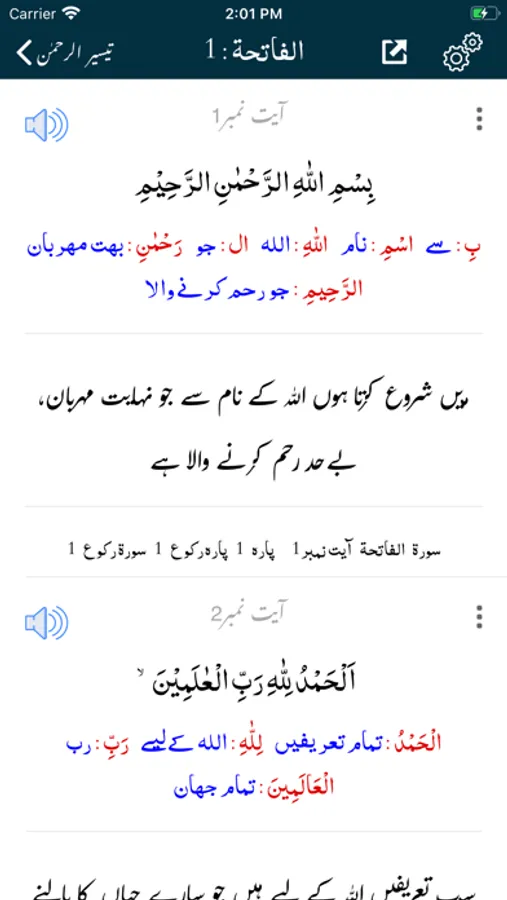 Carrier 2:01 PM
تیسیر الرحمٰن الفاتحة : 1
آیت نمبر1
بِسْمِ اللّٰهِ الرَّحْمٰنِ الرَّحِیْمِ
بِ: سے اسْمِ: نام اللّٰهِ: الله ال: جو رَحْمٰنِ: بهت مهربان
الرَّحِیمِ: جو رحم کرنے والا
میں شروع کرتا ہوں اللہ کے نام سے جو نہایت مہربان،
بے حد رحم کرنے والا ہے
سورة الفاتحة آیت نمبر1 پارہ 1 پارہ رکوع 1 سورة رکوع 1
آیت نمبر2
اَلْحَمْدُ لِلّٰهِ رَبِّ الْعٰلَمِیْنَ ۙ
الْحَمْدُ: تمام تعریفیں لِلّٰهِ: الله کے لیے رَبِّ: رب
الْعَالَمِینَ: تمام جهان
سب تعریفیں اللہ کے لیے ہیں جو سارے جہاں کا پالنے